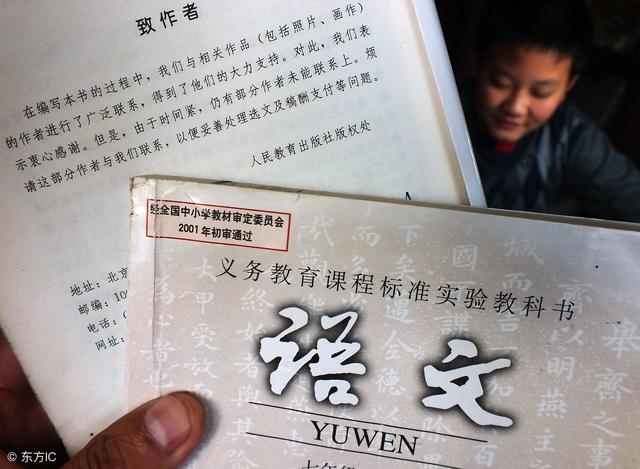 致作者
在编写本书的过程中，我们与相关作品（包括照片、画作）
的作者进行了广泛联系，得到了他们的大力支持。对此，我们表
示衷心感谢。但是，由于时间紧，仍有部分作者未能联系上。烦
请这部分作者与我们联系，以便妥善处理选文及稿酬支付等问题。
人民教育出版社版权处
地址：北京
邮编：10
电话：（
网址：
经全国中小学教材审定委员会
2001年初审通过
义务教育课程标准实验教科书
语文
YUWEN
七年级
© 东方IC